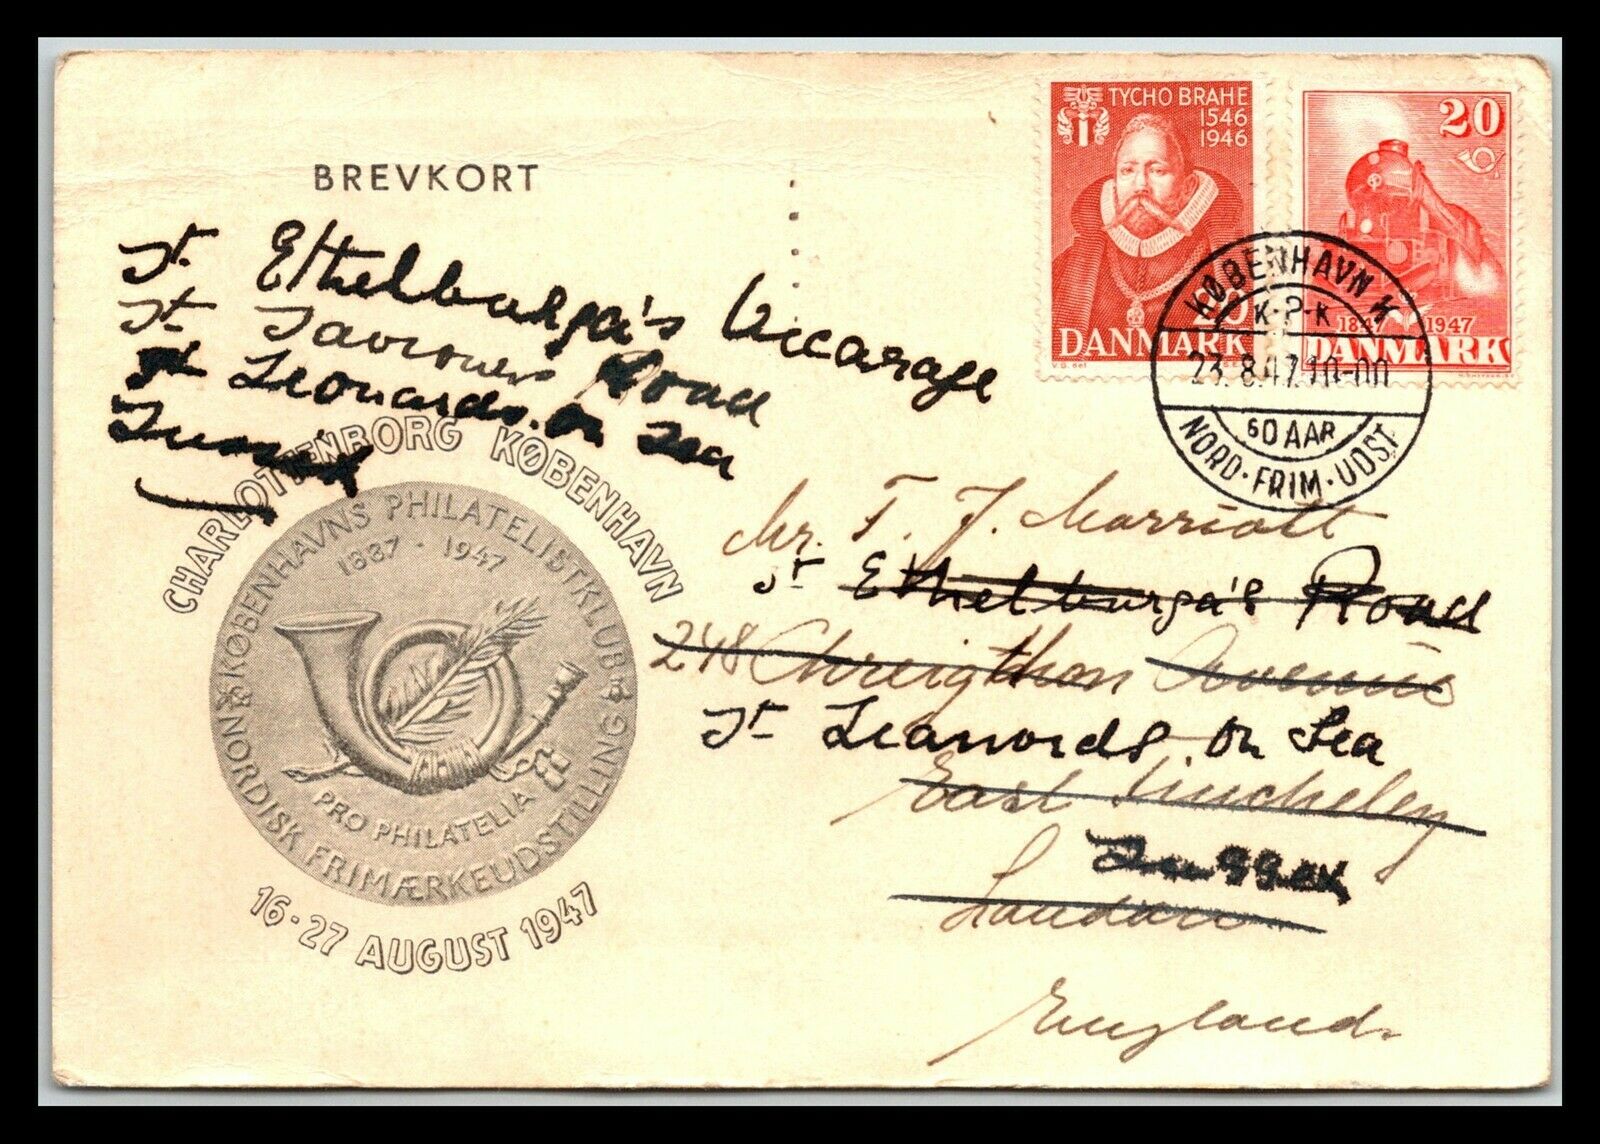 BREVKORT
St Ethelburga's Viccarage
St Saviours Road
St Leonards. on Sea
Sussex
CHARLOTTENBORG KØBENHAVN
KØBENHAVNS PHILATELISTKLUB
1887 - 1947
NORDISK FRIMÆRKEUDSTILLING
PRO PHILATELIA
16-27 AUGUST 1947
TYCHO BRAHE
1546
1946
20
DANMARK
20
1847 1947
DANMARK
KØBENHAVN K
K-P-K
23.8.47.10-00
60 AAR
NORD-FRIM-UDST
Mr. T. J. Marriott
St Ethelburga's Road
248 Avenue
St Leanords on Sea
East Finchely
Sussex
London
England.